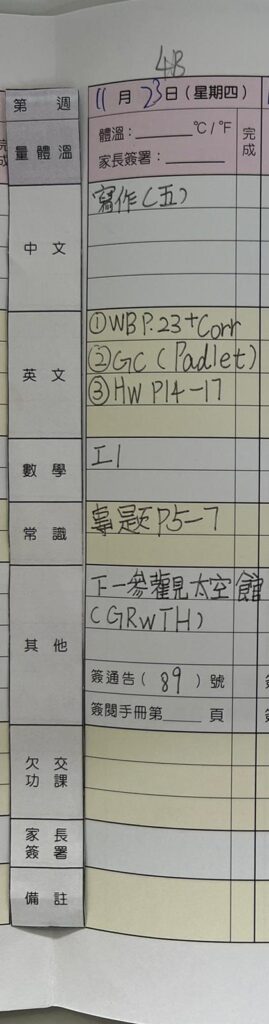 4B
第 週
11月23日(星期四)
完成
量體溫
體溫:______°C/°F
家長簽署:______
完成
中文
寫作(五)
英文
①WB P.23+Corr
②GC (Padlet)
③HW P14-17
數學
工1
常識
專題P.5-7
其他
下一參觀太空館
(GRWTH)
簽通告(89)號
簽閱手冊第____頁
欠交功課
家長簽署
備註